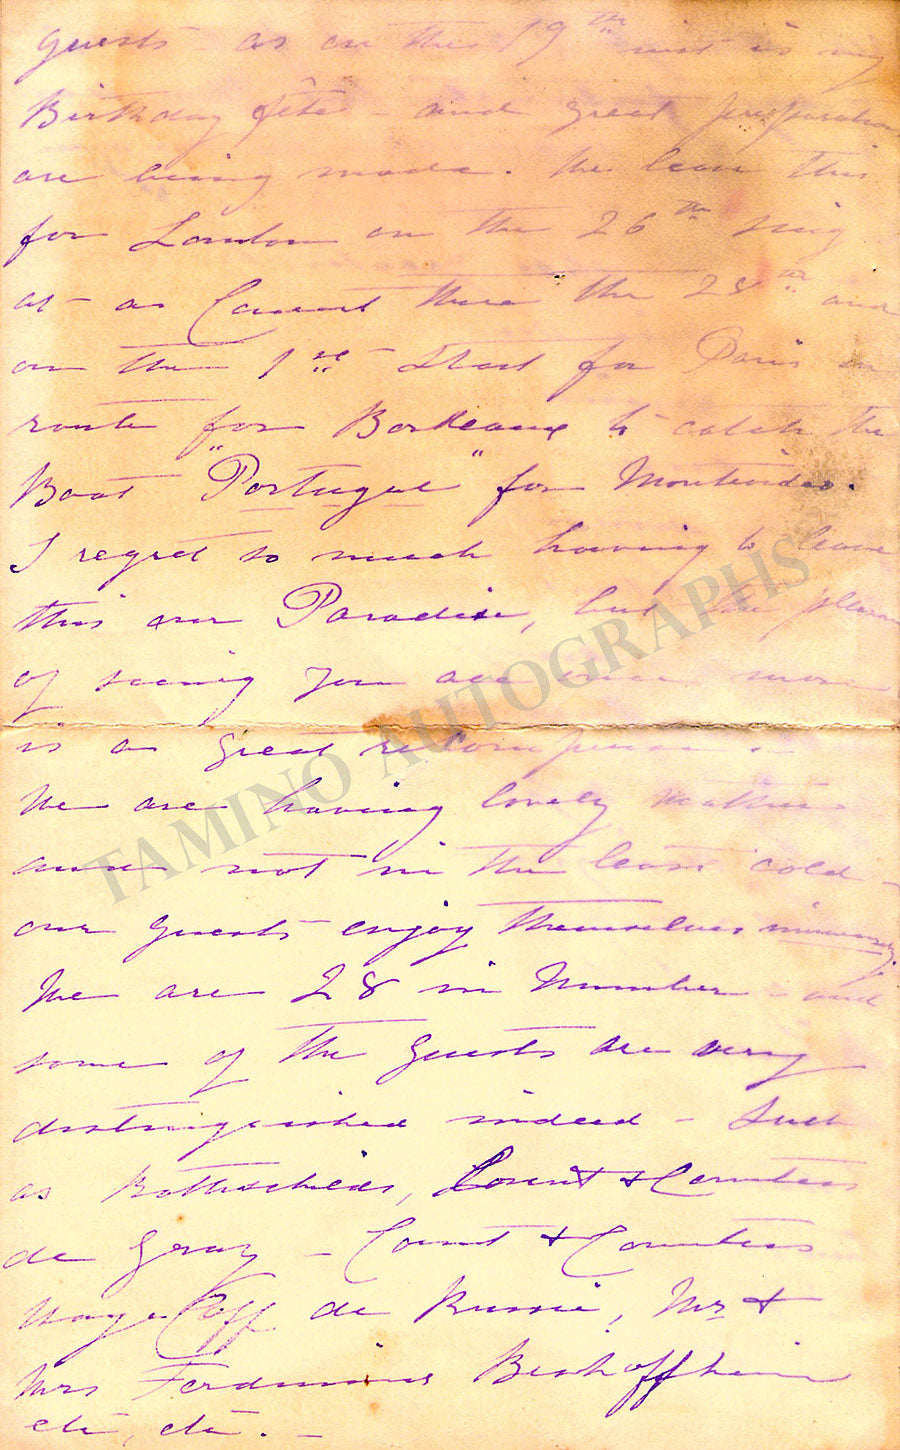 guests – as on the 19th inst is my
Birthday fête – and great preparations
are being made. We leave this
for London on the 26th sing
at – a Concert there the 28th and
on the 1st Start for Paris en
route for Bordeaux to catch the
Boat "Portugal" for Montevideo.
I regret so much having to leave
this our Paradise, but the pleasure
of seeing you all once more
is a great recompense. –
We are having lovely weather
and not in the least cold –
our guests enjoy themselves immensely.
We are 28 in Number – and
some of the guests are very
distinguished indeed – Such
as Rothschilds, Count & Countess
de Gray – Count & Countess
de Russie, Mr &
Mrs Ferdinand Bischoffsheim
etc, etc. –
TAMINO AUTOGRAPHS